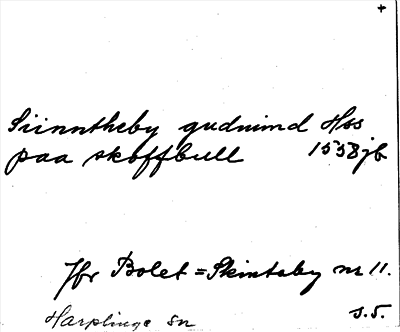 +
Siinntheby gudmund Hss
paa skoffbull 1558 jb
Jfr Bolet = Skintaby nr 11.
Harplinge sn s. 5.